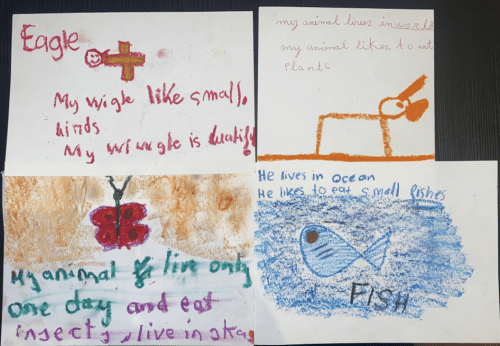 Eagle
My wigle like small.
birds
My wingle is
my animal lives in world
my animal likes to eat
plants
My animal live only
one day and eat
insects, live in skay
He lives in ocean
He likes to eat small fishes
FISH